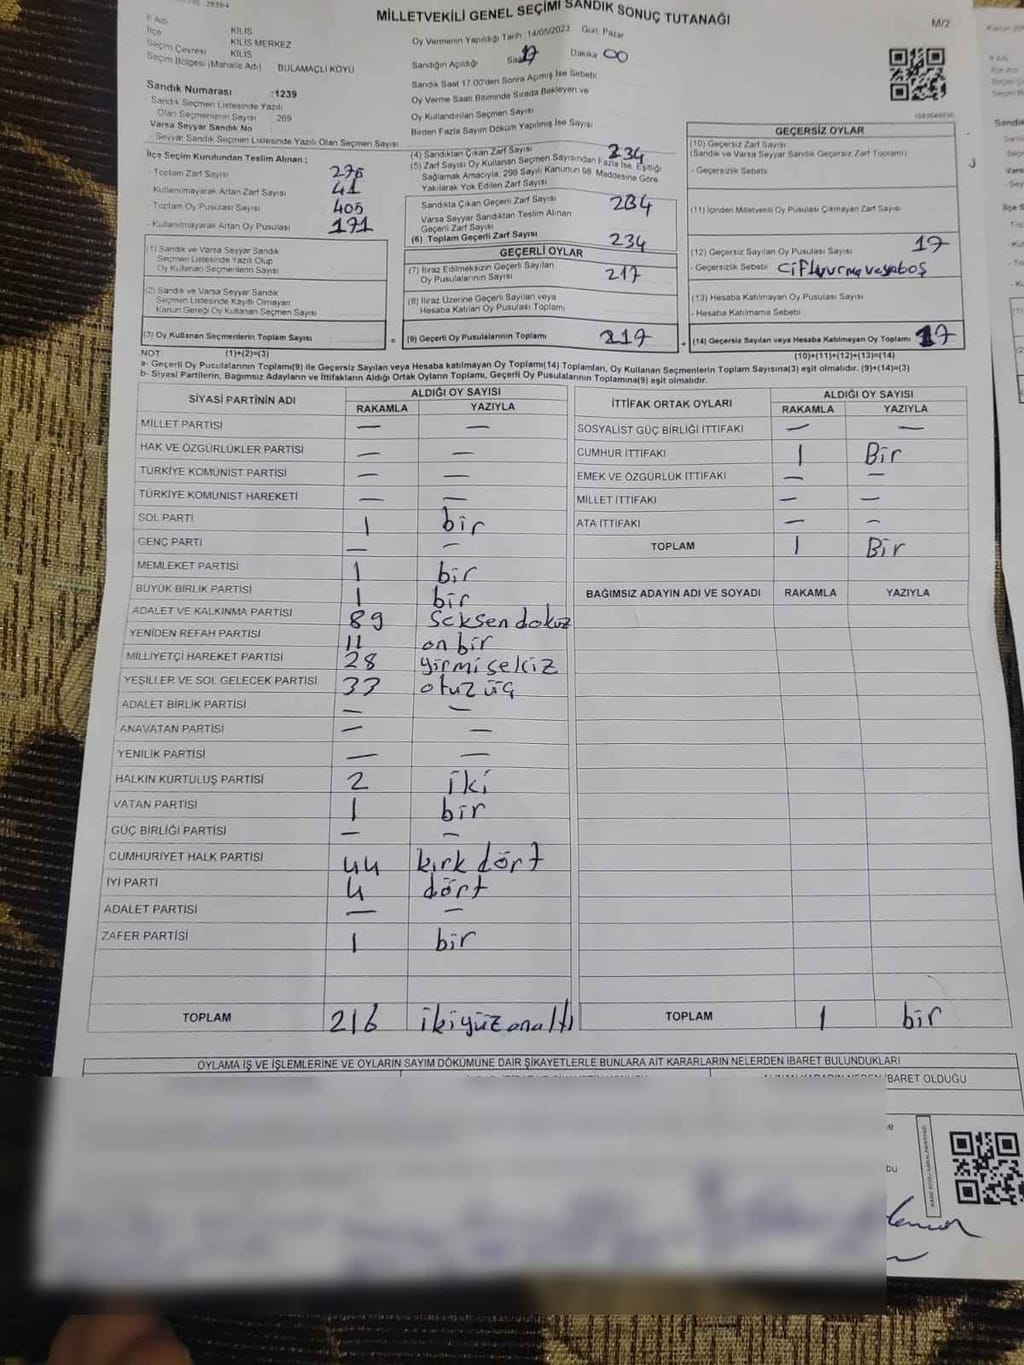 MİLLETVEKİLİ GENEL SEÇİMİ SANDIK SONUÇ TUTANAĞI
M/2
İl Adı KİLİS
İlçe KİLİS MERKEZ
Seçim Çevresi KİLİS
Seçim Bölgesi (Mahalle Adı) BULAMAÇLI KÖYÜ
Oy Vermenin Yapıldığı Tarih :14/05/2023 Gün Pazar
Sandığın Açıldığı Saat 17 Dakika 00
Sandık Saat 17.00'den Sonra Açmış İse Sebebi
Oy Verme Saati Bitiminde Sırada Bekleyen ve
Oy Kullandırılan Seçmen Sayısı
Birden Fazla Sayım Döküm Yapılmış İse Sayısı
Sandık Numarası :1239
- Sandık Seçmen Listesinde Yazılı
Olan Seçmenlerin Sayısı : 269
Varsa Seyyar Sandık No
- Seyyar Sandık Seçmen Listesinde Yazılı Olan Seçmen Sayısı
İlçe Seçim Kurulundan Teslim Alınan ;
- Toplam Zarf Sayısı
- Kullanılmayarak Artan Zarf Sayısı 41
- Toplam Oy Pusulası Sayısı 405
- Kullanılmayarak Artan Oy Pusulası 171
(1) Sandık ve Varsa Seyyar Sandık
Seçmen Listesinde Yazılı Olup
Oy Kullanan Seçmenlerin Sayısı
(2) Sandık ve Varsa Seyyar Sandık
Seçmen Listesinde Kayıtlı Olmayan
Kanun Gereği Oy Kullanan Seçmen Sayısı
(3) Oy Kullanan Seçmenlerin Toplam Sayısı
(4) Sandıktan Çıkan Zarf Sayısı 234
(5) Zarf Sayısı Oy Kullanan Seçmen Sayısından Fazla İse, Eşitliği
Sağlamak Amacıyla, 298 Sayılı Kanunun 98 Maddesine Göre
Yakılarak Yok Edilen Zarf Sayısı
Sandıkta Çıkan Geçerli Zarf Sayısı 234
Varsa Seyyar Sandıktan Teslim Alınan
Geçerli Zarf Sayısı
(6) Toplam Geçerli Zarf Sayısı 234
GEÇERLİ OYLAR
(7) İtiraz Edilmeksizin Geçerli Sayılan
Oy Pusulalarının Sayısı 217
(8) İtiraz Üzerine Geçerli Sayılan veya
Hesaba Katılan Oy Pusulası Toplamı
= (9) Geçerli Oy Pusulalarının Toplamı 217
GEÇERSİZ OYLAR
(10) Geçersiz Zarf Sayısı
(Sandık ve Varsa Seyyar Sandık Geçersiz Zarf Toplamı)
- Geçersizlik Sebebi
(11) İçinden Milletvekili Oy Pusulası Çıkmayan Zarf Sayısı
(12) Geçersiz Sayılan Oy Pusulası Sayısı 17
- Geçersizlik Sebebi
(13) Hesaba Katılmayan Oy Pusulası Sayısı
- Hesaba Katılmama Sebebi
+ (14) Geçersiz Sayılan veya Hesaba Katılmayan Oy Toplamı 17
NOT: (1)+(2)=(3)
(10)+(11)+(12)+(13)=(14)
a- Geçerli Oy Pusulalarının Toplamı(9) ile Geçersiz Sayılan veya Hesaba katılmayan Oy Toplamı(14) Toplamları, Oy Kullanan Seçmenlerin Toplam Sayısına(3) eşit olmalıdır. (9)+(14)=(3)
b- Siyasi Partilerin, Bağımsız Adayların ve İttifakların Aldığı Ortak Oyların Toplamı, Geçerli Oy Pusulalarının Toplamına(9) eşit olmalıdır.
SİYASİ PARTİNİN ADI ALDIĞI OY SAYISI
RAKAMLA YAZIYLA
MİLLET PARTİSİ — —
HAK VE ÖZGÜRLÜKLER PARTİSİ — —
TÜRKİYE KOMÜNİST PARTİSİ — —
TÜRKİYE KOMÜNİST HAREKETİ — —
SOL PARTİ 1 bir
GENÇ PARTİ — —
MEMLEKET PARTİSİ 1 bir
BÜYÜK BİRLİK PARTİSİ 1 bir
ADALET VE KALKINMA PARTİSİ 89 Seksen dokuz
YENİDEN REFAH PARTİSİ 11 on bir
MİLLİYETÇİ HAREKET PARTİSİ 28 yirmi sekiz
YEŞİLLER VE SOL GELECEK PARTİSİ 33 otuz üç
ADALET BİRLİK PARTİSİ — —
ANAVATAN PARTİSİ — —
YENİLİK PARTİSİ — —
HALKIN KURTULUŞ PARTİSİ 2 iki
VATAN PARTİSİ 1 bir
GÜÇ BİRLİĞİ PARTİSİ — —
CUMHURİYET HALK PARTİSİ 44 kırk dört
İYİ PARTİ 4 dört
ADALET PARTİSİ — —
ZAFER PARTİSİ 1 bir
TOPLAM 216 ikiyüz onaltı
İTTİFAK ORTAK OYLARI ALDIĞI OY SAYISI
RAKAMLA YAZIYLA
SOSYALİST GÜÇ BİRLİĞİ İTTİFAKI — —
CUMHUR İTTİFAKI 1 Bir
EMEK VE ÖZGÜRLÜK İTTİFAKI — —
MİLLET İTTİFAKI — —
ATA İTTİFAKI — —
TOPLAM 1 Bir
BAĞIMSIZ ADAYIN ADI VE SOYADI RAKAMLA YAZIYLA
TOPLAM 1 bir
OYLAMA İŞ VE İŞLEMLERİNE VE OYLARIN SAYIM DÖKÜMÜNE DAİR ŞİKAYETLERLE BUNLARA AİT KARARLARIN NELERDEN İBARET BULUNDUKLARI
İBARET OLDUĞU